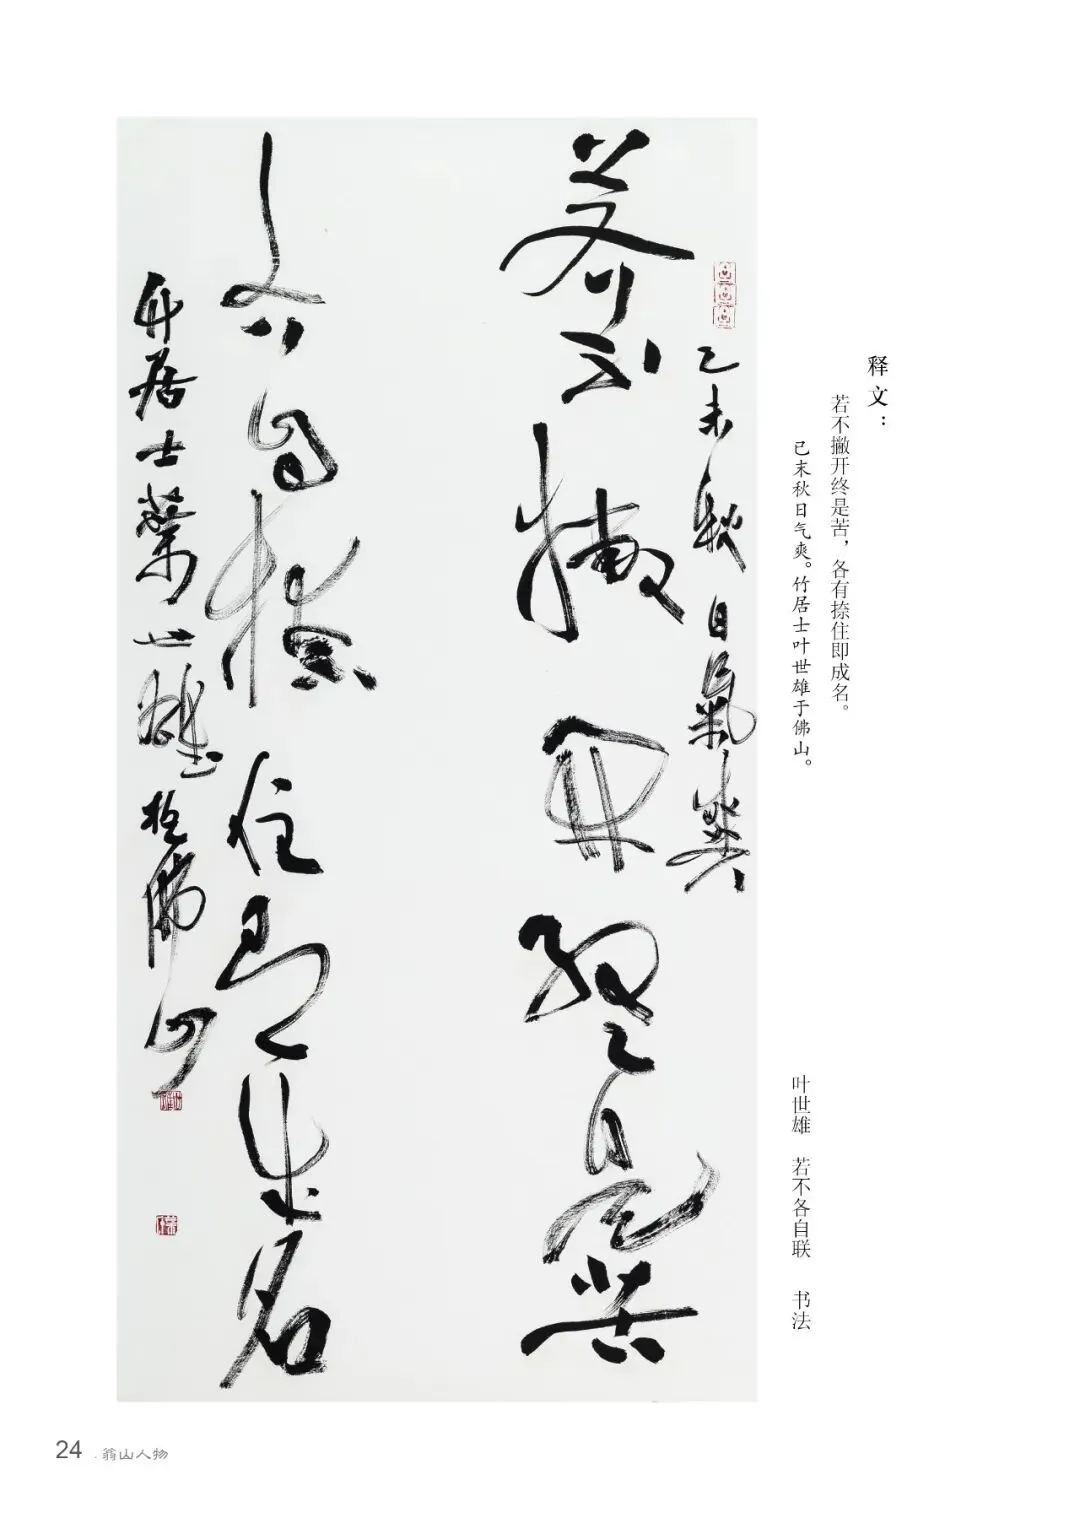 释文：
若不撇开终是苦，各有捺住即成名。
已未秋日气爽。竹居士叶世雄于佛山。
叶世雄 若不各自联 书法
乙未秋日氣爽
若不撇開終是苦
各自捺住即成名
竹居士葉世雄於佛山
24 .翁山人物